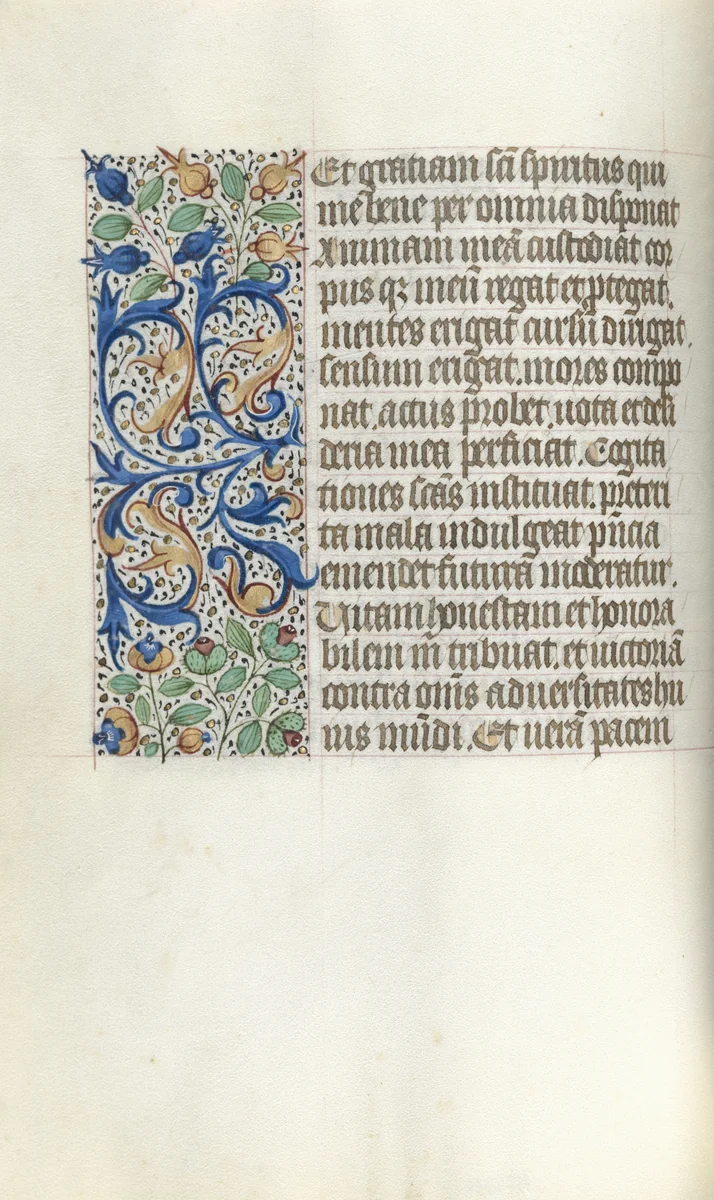 Et gratiam sc̄i spiritus qui
me bene per omnia disponat
Animam meā custodiat cor
pus qꝫ meū regat et ꝓtegat.
mentes erigat cursū dirigat.
sensum erigat. mores compo
nat. actus probet. uota et desi
deria mea perficiat. Cogita
tiones sc̄as instituat. preteri
ta mala indulgeat pn̄cia
emendet futura moderatur.
Uitam honestam et honora
bilem m̄ tribuat. et uictoriā
contra om̄s aduersitates hu
ius mūdi. Et uerā pacem